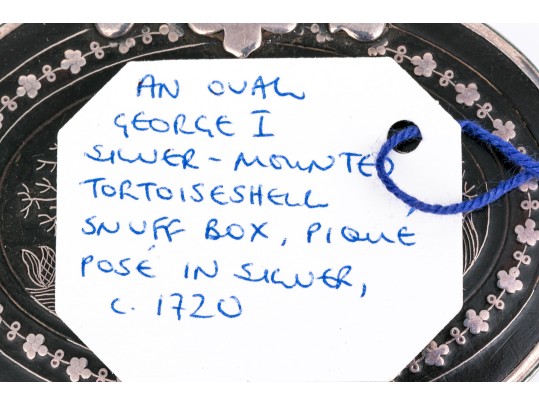 AN OVAL
GEORGE I
SILVER-MOUNTED
TORTOISESHELL
SNUFF BOX, PIQUE
POSÉ IN SILVER,
c. 1720